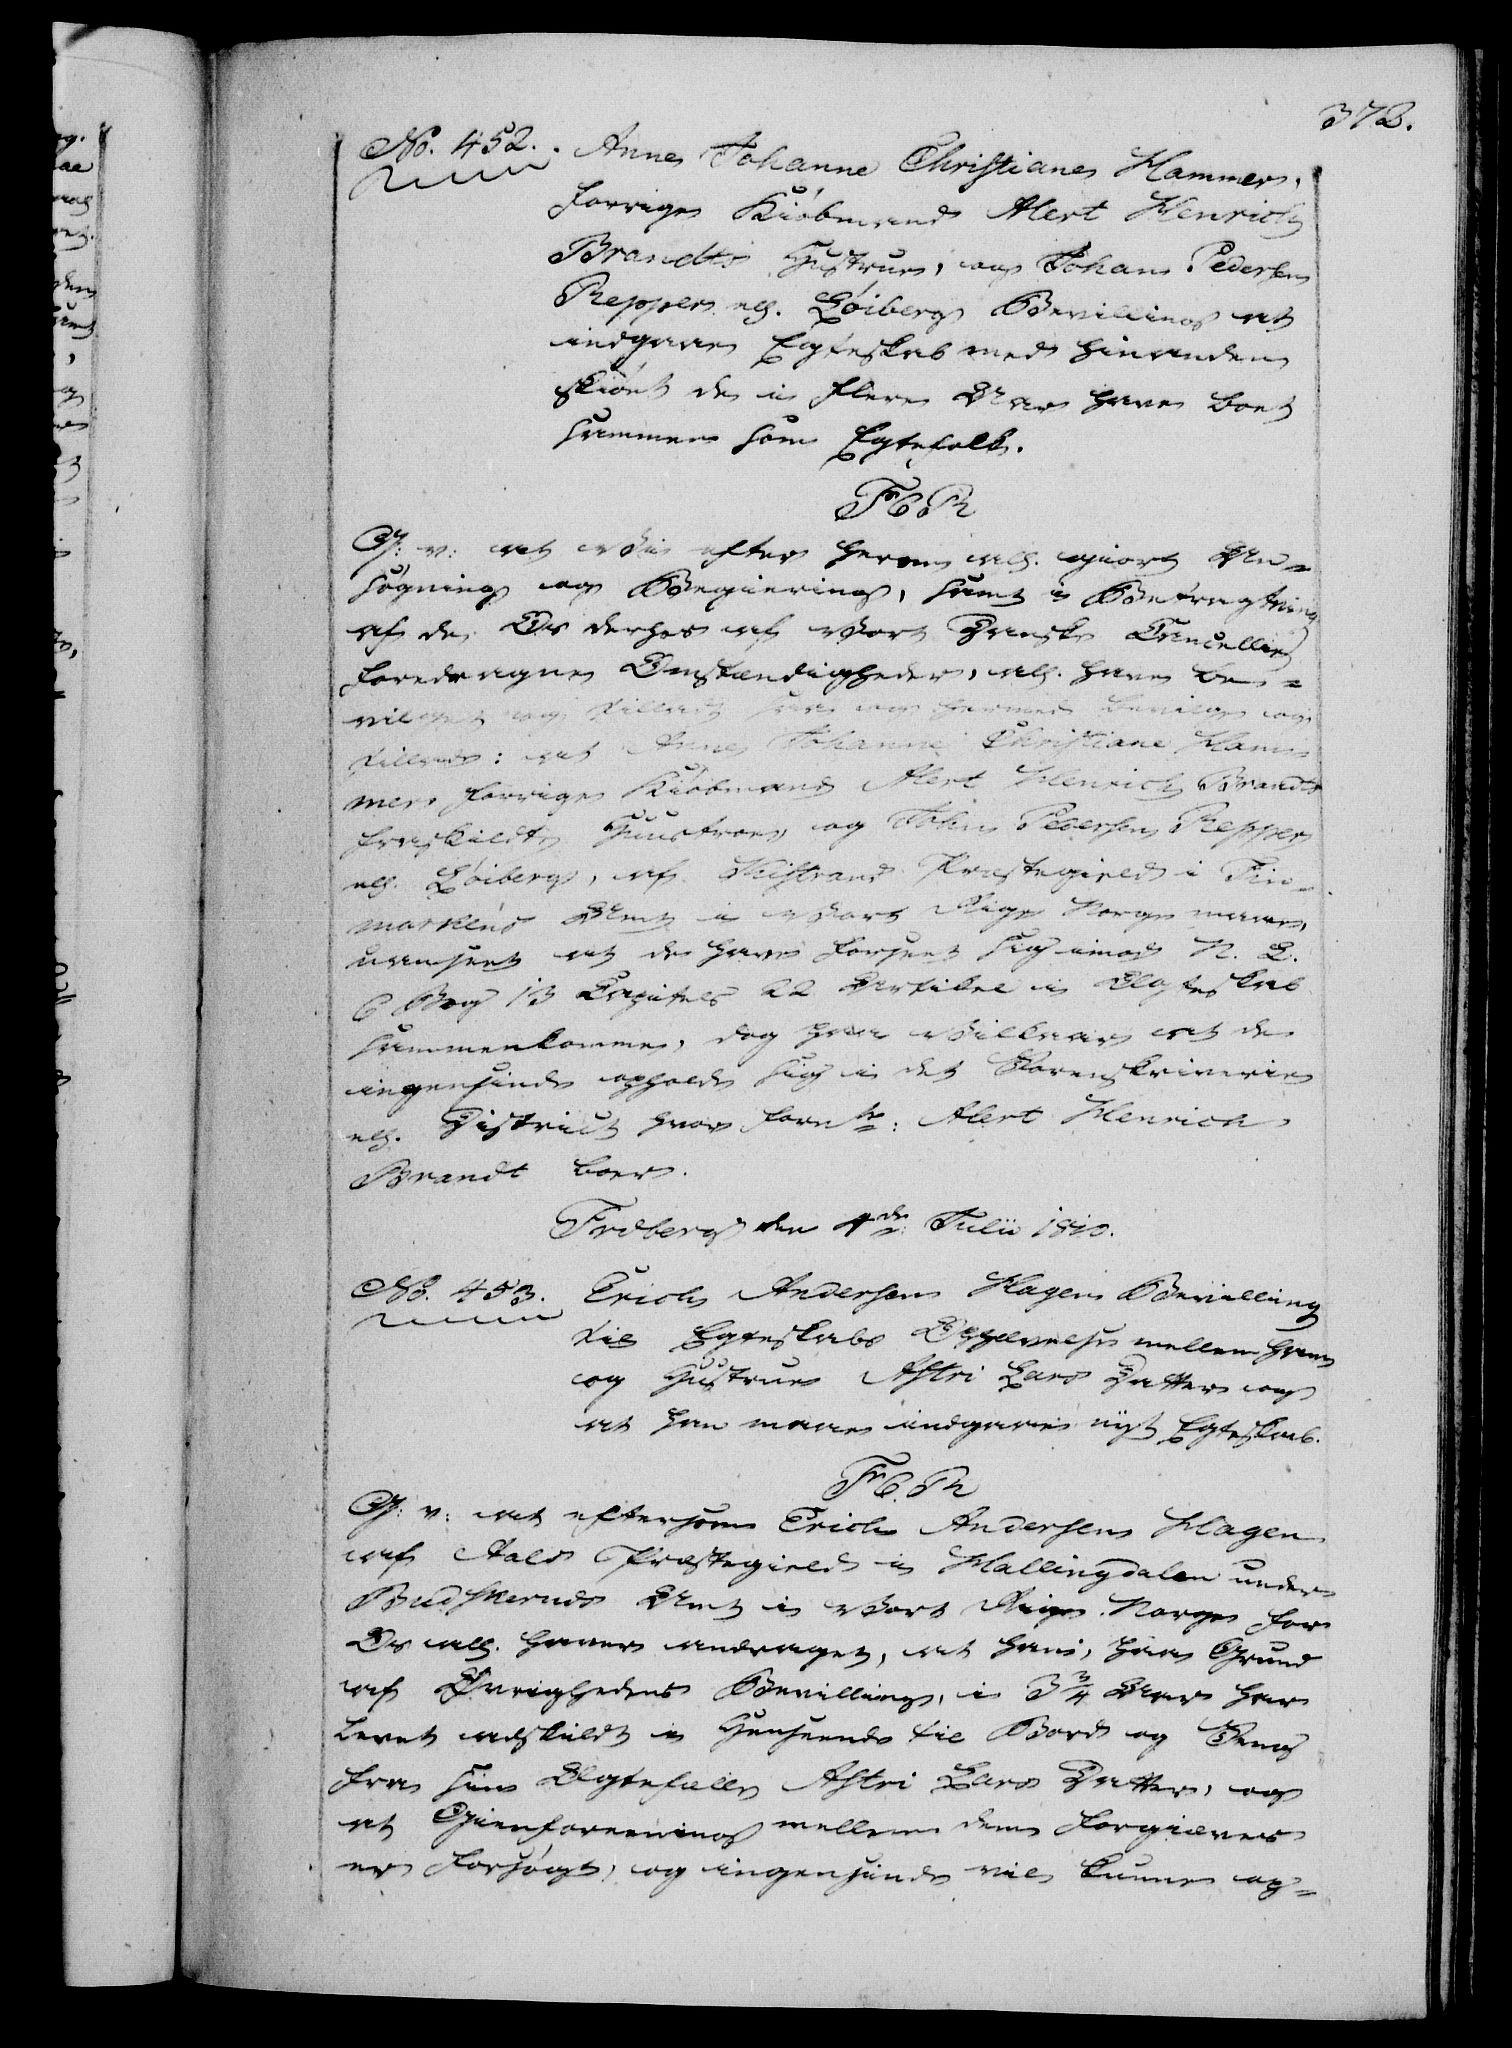 372.
No. 452. Anne Johanne Christiane Hammer,
forrige Kiöbmand Alert Henrich
Brandts Hustrue, og Johan Pedersen
Repper ell. Löiberg Bevilling at
indgaae Egteskab med hinanden
skiönt de i flere Aar have boet
sammen som Egtefolk.
F6R
G: v: at Vi efter herom all. giort An=
sögning og Begiering, samt i Betragtning
af de Os derhos af Vort Danske Cancellie
foredragne Omstændigheder, all. have be=
vilget og tilladt saa og hermed bevilge og
tillade: at Anne Johanne Christiane Ham
mer forrige Kiöbmand Alert Henrich Brandts
fraskildte Huustroe, og John Pedersen Repper
ell. Löiberg, af Kistrand Præstegield i Fin=
markens Amt i Vort Rige Norge maae,
uanseet at de have forseet sig imod N. L.
6 Bog 13 Capitels 22 Artikel i Ægteskab
sammenkomme, dog paa Vilkaar at de
ingensinde opholde sig i det Sorenskriverie
ell. District hvor fornte: Alert Henrich
Brandt boer.
Frdberg den 4de Julii 1810.
No. 453. Erich Andersen Hagen Bevilling
til Egteskabs Ophævelse mellem ham
og Hustrue Astri Lars Datter og
at han maae indgaae nyt Egteskab.
F6.R
G: v: at eftersom Erich Andersen Hagen
af Aals Præstegield i Hallingdalen under
Budskeruds Amt i Vort Rige Norge for
Os all. haver andraget, at han, paa Grund
af Øvrighedens Bevilling, i 3 3/4 Aar har
levet adskildt i Henseende til Bord og Seng
fra sin Ægtefælle Astri Lars Datter, og
at Gienforeening mellem dem forgieves
er forsögt, og ingensinde vil kunne op=